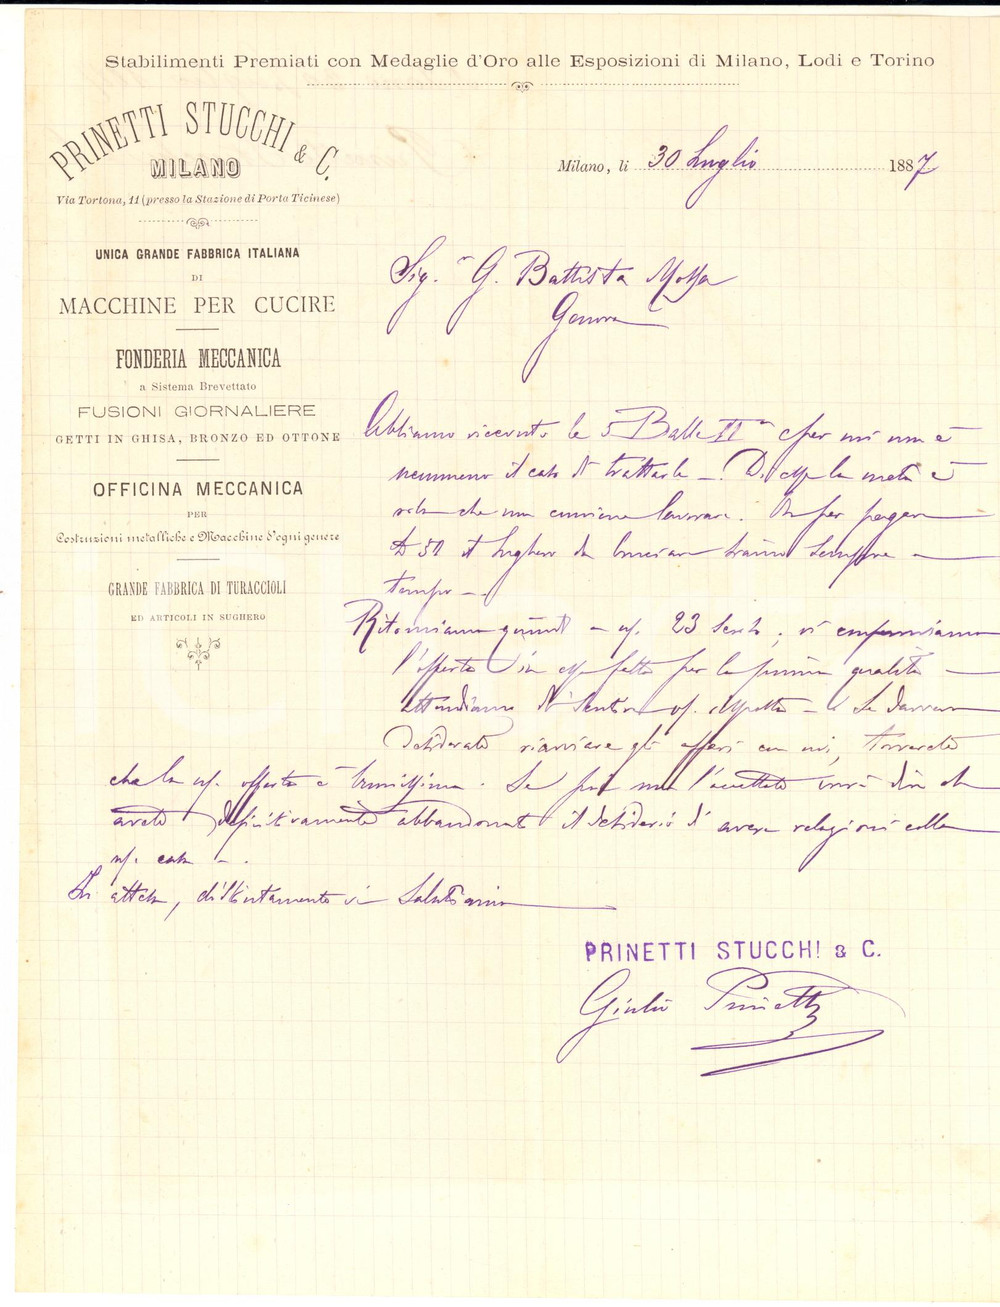 Stabilimenti Premiati con Medaglie d'Oro alle Esposizioni di Milano, Lodi e Torino
PRINETTI STUCCHI & C.
MILANO
Via Tortona, 11 (presso la Stazione di Porta Ticinese)
UNICA GRANDE FABBRICA ITALIANA
DI
MACCHINE PER CUCIRE
FONDERIA MECCANICA
a Sistema Brevettato
FUSIONI GIORNALIERE
GETTI IN GHISA, BRONZO ED OTTONE
OFFICINA MECCANICA
PER
Costruzioni metalliche e Macchine d'ogni genere
GRANDE FABBRICA DI TURACCIOLI
ED ARTICOLI IN SUGHERO
Milano, li 30 Luglio 1887
Sig. G. Battista
Genova
Abbiamo ricevuto le 5 Balle per noi non è
nemmeno il caso di trattarle -. Di esse la metà è
roba che non conviene lavorare. per pagare
sughero da bruciare siamo sempre a
tempo -.
Ritorniamo quindi a 23 ; vi confermiamo
l'offerta già fatta per la prima qualità -
attendiamo di sentire risposta - Se davvero
desiderate riavviare gli affari con noi, troverete
che la offerta è buonissima. Se poi non l'accettate vorrà dire che
avete definitivamente abbandonato il desiderio di avere relazioni colla
casa -.
In attesa, distintamente vi salutiamo
PRINETTI STUCCHI & C.
Giulio Prinetti